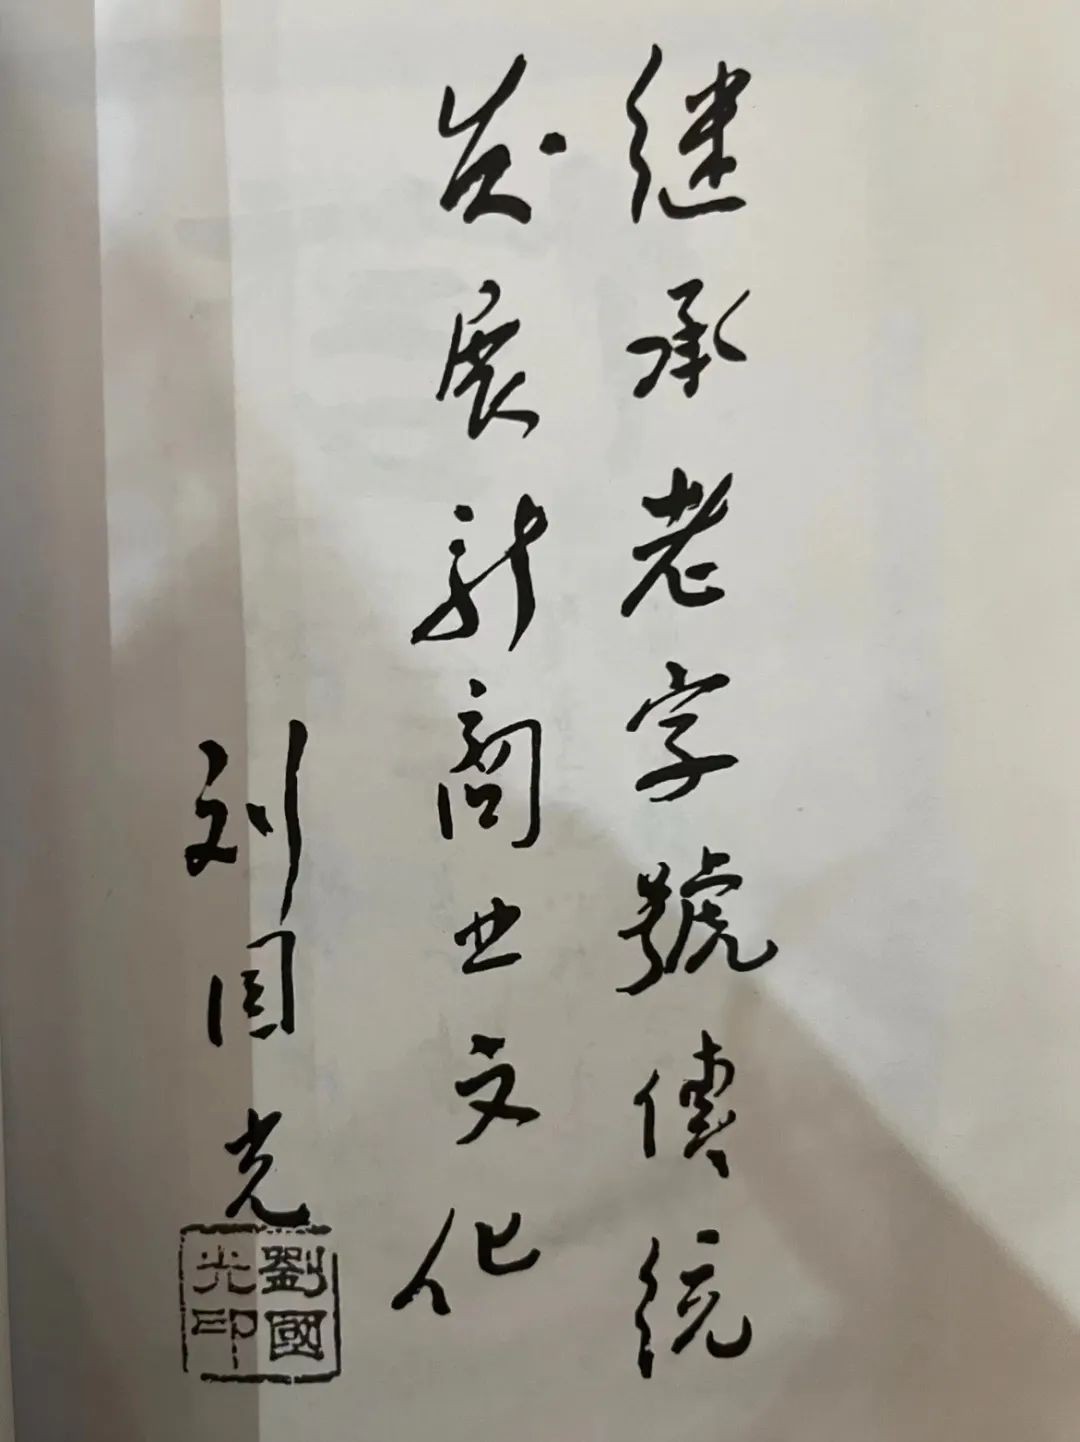 继承老字號傳統
发展新商业文化
刘国光
劉國光印